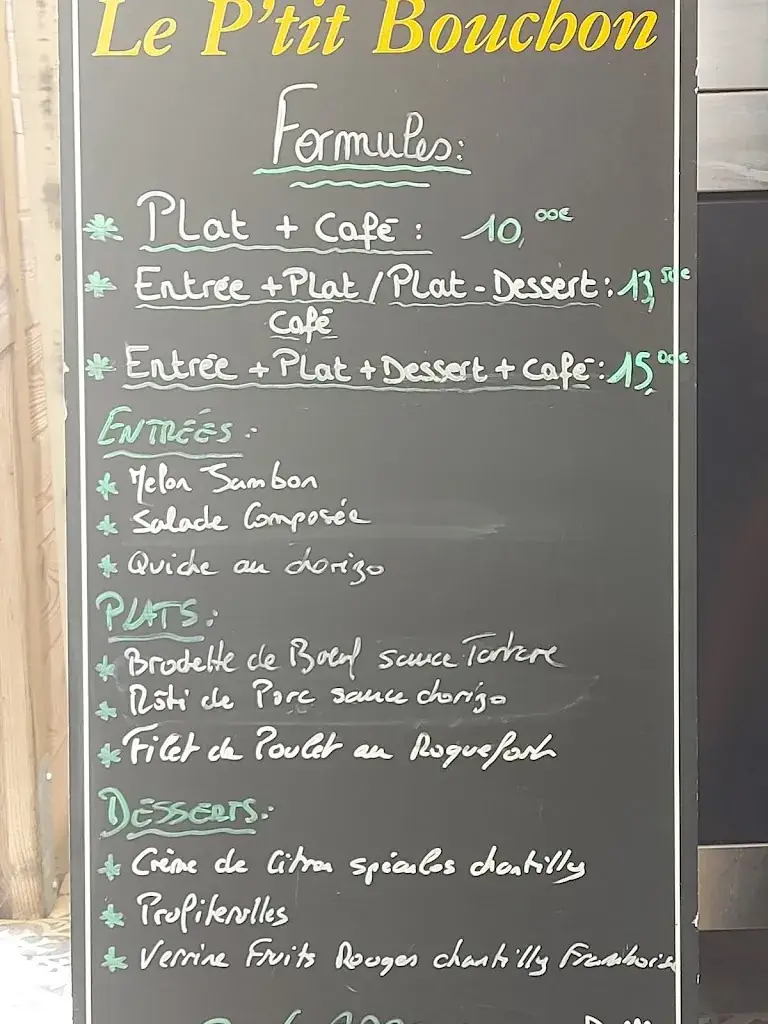 Le P'tit Bouchon
Formules:
* Plat + Café : 10,00€
* Entrée + Plat / Plat - Dessert : 13,50€
Café
* Entrée + Plat + Dessert + Café : 15,00€
ENTRÉES :
* Melon Jambon
* Salade Composée
* Quiche au chorizo
PLATS :
* Brochette de Boeuf sauce Tartare
* Rôti de Porc sauce chorizo
* Filet de Poulet au Roquefort
DESSERTS :
* Crème de Citron spéculos chantilly
* Profiterolles
* Verrine Fruits Rouges chantilly Framboise